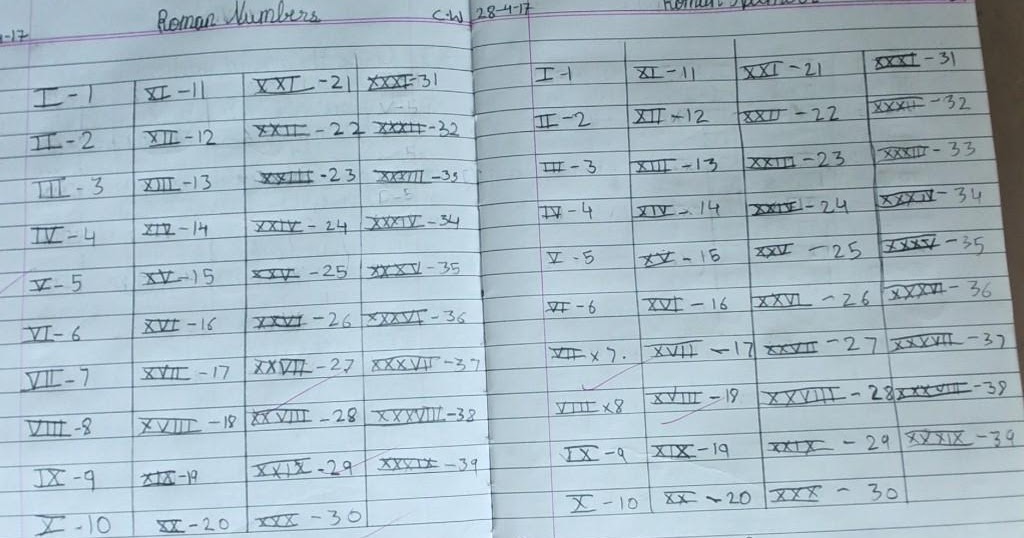 -17 Roman Numbers
I-1 XI-11 XXI-21 XXXI-31
II-2 XII-12 XXII-22 XXXII-32
III-3 XIII-13 XXIII-23 XXXIII-33
IV-4 XIV-14 XXIV-24 XXXIV-34
V-5 XV-15 XXV-25 XXXV-35
VI-6 XVI-16 XXVI-26 XXXVI-36
VII-7 XVII-17 XXVII-27 XXXVII-37
VIII-8 XVIII-18 XXVIII-28 XXXVIII-38
IX-9 XIX-19 XXIX-29 XXXIX-39
X-10 XX-20 XXX-30
C.W 28-4-17 Roman
I-1 XI-11 XXI-21 XXXI-31
II-2 XII-12 XXII-22 XXXII-32
III-3 XIII-13 XXIII-23 XXXIII-33
IV-4 XIV-14 XXIV-24 XXXIV-34
V-5 XV-15 XXV-25 XXXV-35
VI-6 XVI-16 XXVI-26 XXXVI-36
VII x 7. XVII-17 XXVII-27 XXXVII-37
VIII x8 XVIII-18 XXVIII-28 XXXVIII-38
IX-9 XIX-19 XXIX-29 XXXIX-39
X-10 XX-20 XXX-30